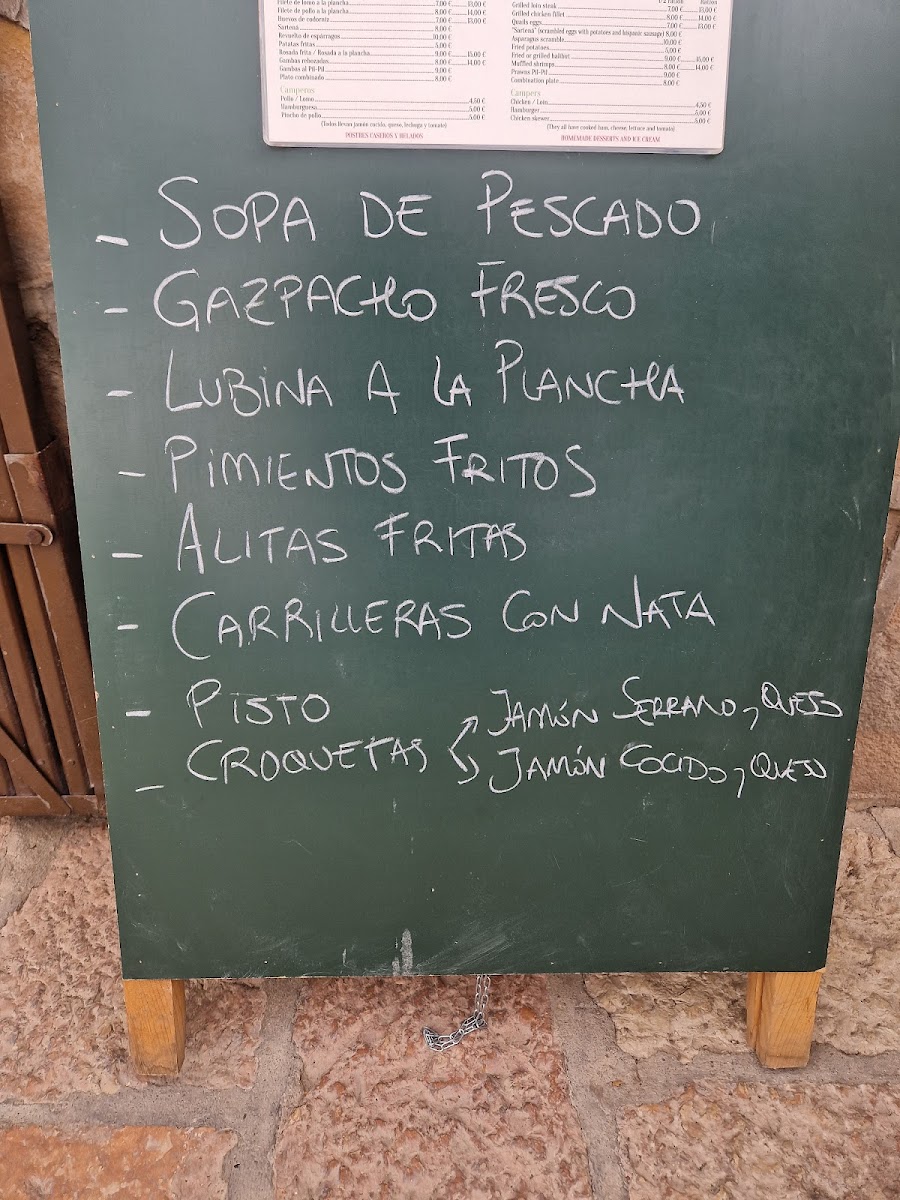 Filete de lomo a la plancha 7,00 € 13,00 €
Filete de pollo a la plancha 8,00 € 14,00 €
Huevos de codorniz 7,00 € 13,00 €
Sartená 8,00 €
Revuelto de espárragos 10,00 €
Patatas fritas 5,00 €
Rosada frita / Rosada a la plancha 9,00 € 15,00 €
Gambas rebozadas 8,00 € 14,00 €
Gambas al Pil-Pil 9,00 €
Plato combinado 8,00 €
Camperos
Pollo / Lomo 4,50 €
Hamburguesa 5,00 €
Pincho de pollo 5,00 €
(Todos llevan jamón cocido, queso, lechuga y tomate)
POSTRES CASEROS Y HELADOS
Grilled loin steak 7,00 € 13,00 €
Grilled chicken fillet 8,00 € 14,00 €
Quails eggs 7,00 € 13,00 €
"Sartená" (scrambled eggs with potatoes and hispanic sausage) 8,00 €
Asparagus scramble 10,00 €
Fried potatoes 5,00 €
Fried or grilled halibut 9,00 € 15,00 €
Muffled shrimps 8,00 € 14,00 €
Prawns Pil-Pil 9,00 €
Combination plate 8,00 €
Campers
Chicken / Loin 4,50 €
Hamburger 5,00 €
Chicken skewer 5,00 €
(They all have cooked ham, cheese, lettuce and tomato)
HOMEMADE DESSERTS AND ICE CREAM
- SOPA DE PESCADO
- GAZPACHO FRESCO
- LUBINA A LA PLANCHA
- PIMIENTOS FRITOS
- ALITAS FRITAS
- CARRILLERAS CON NATA
- PISTO
- CROQUETAS JAMÓN SERRANO, QUESO
JAMÓN COCIDO, QUESO